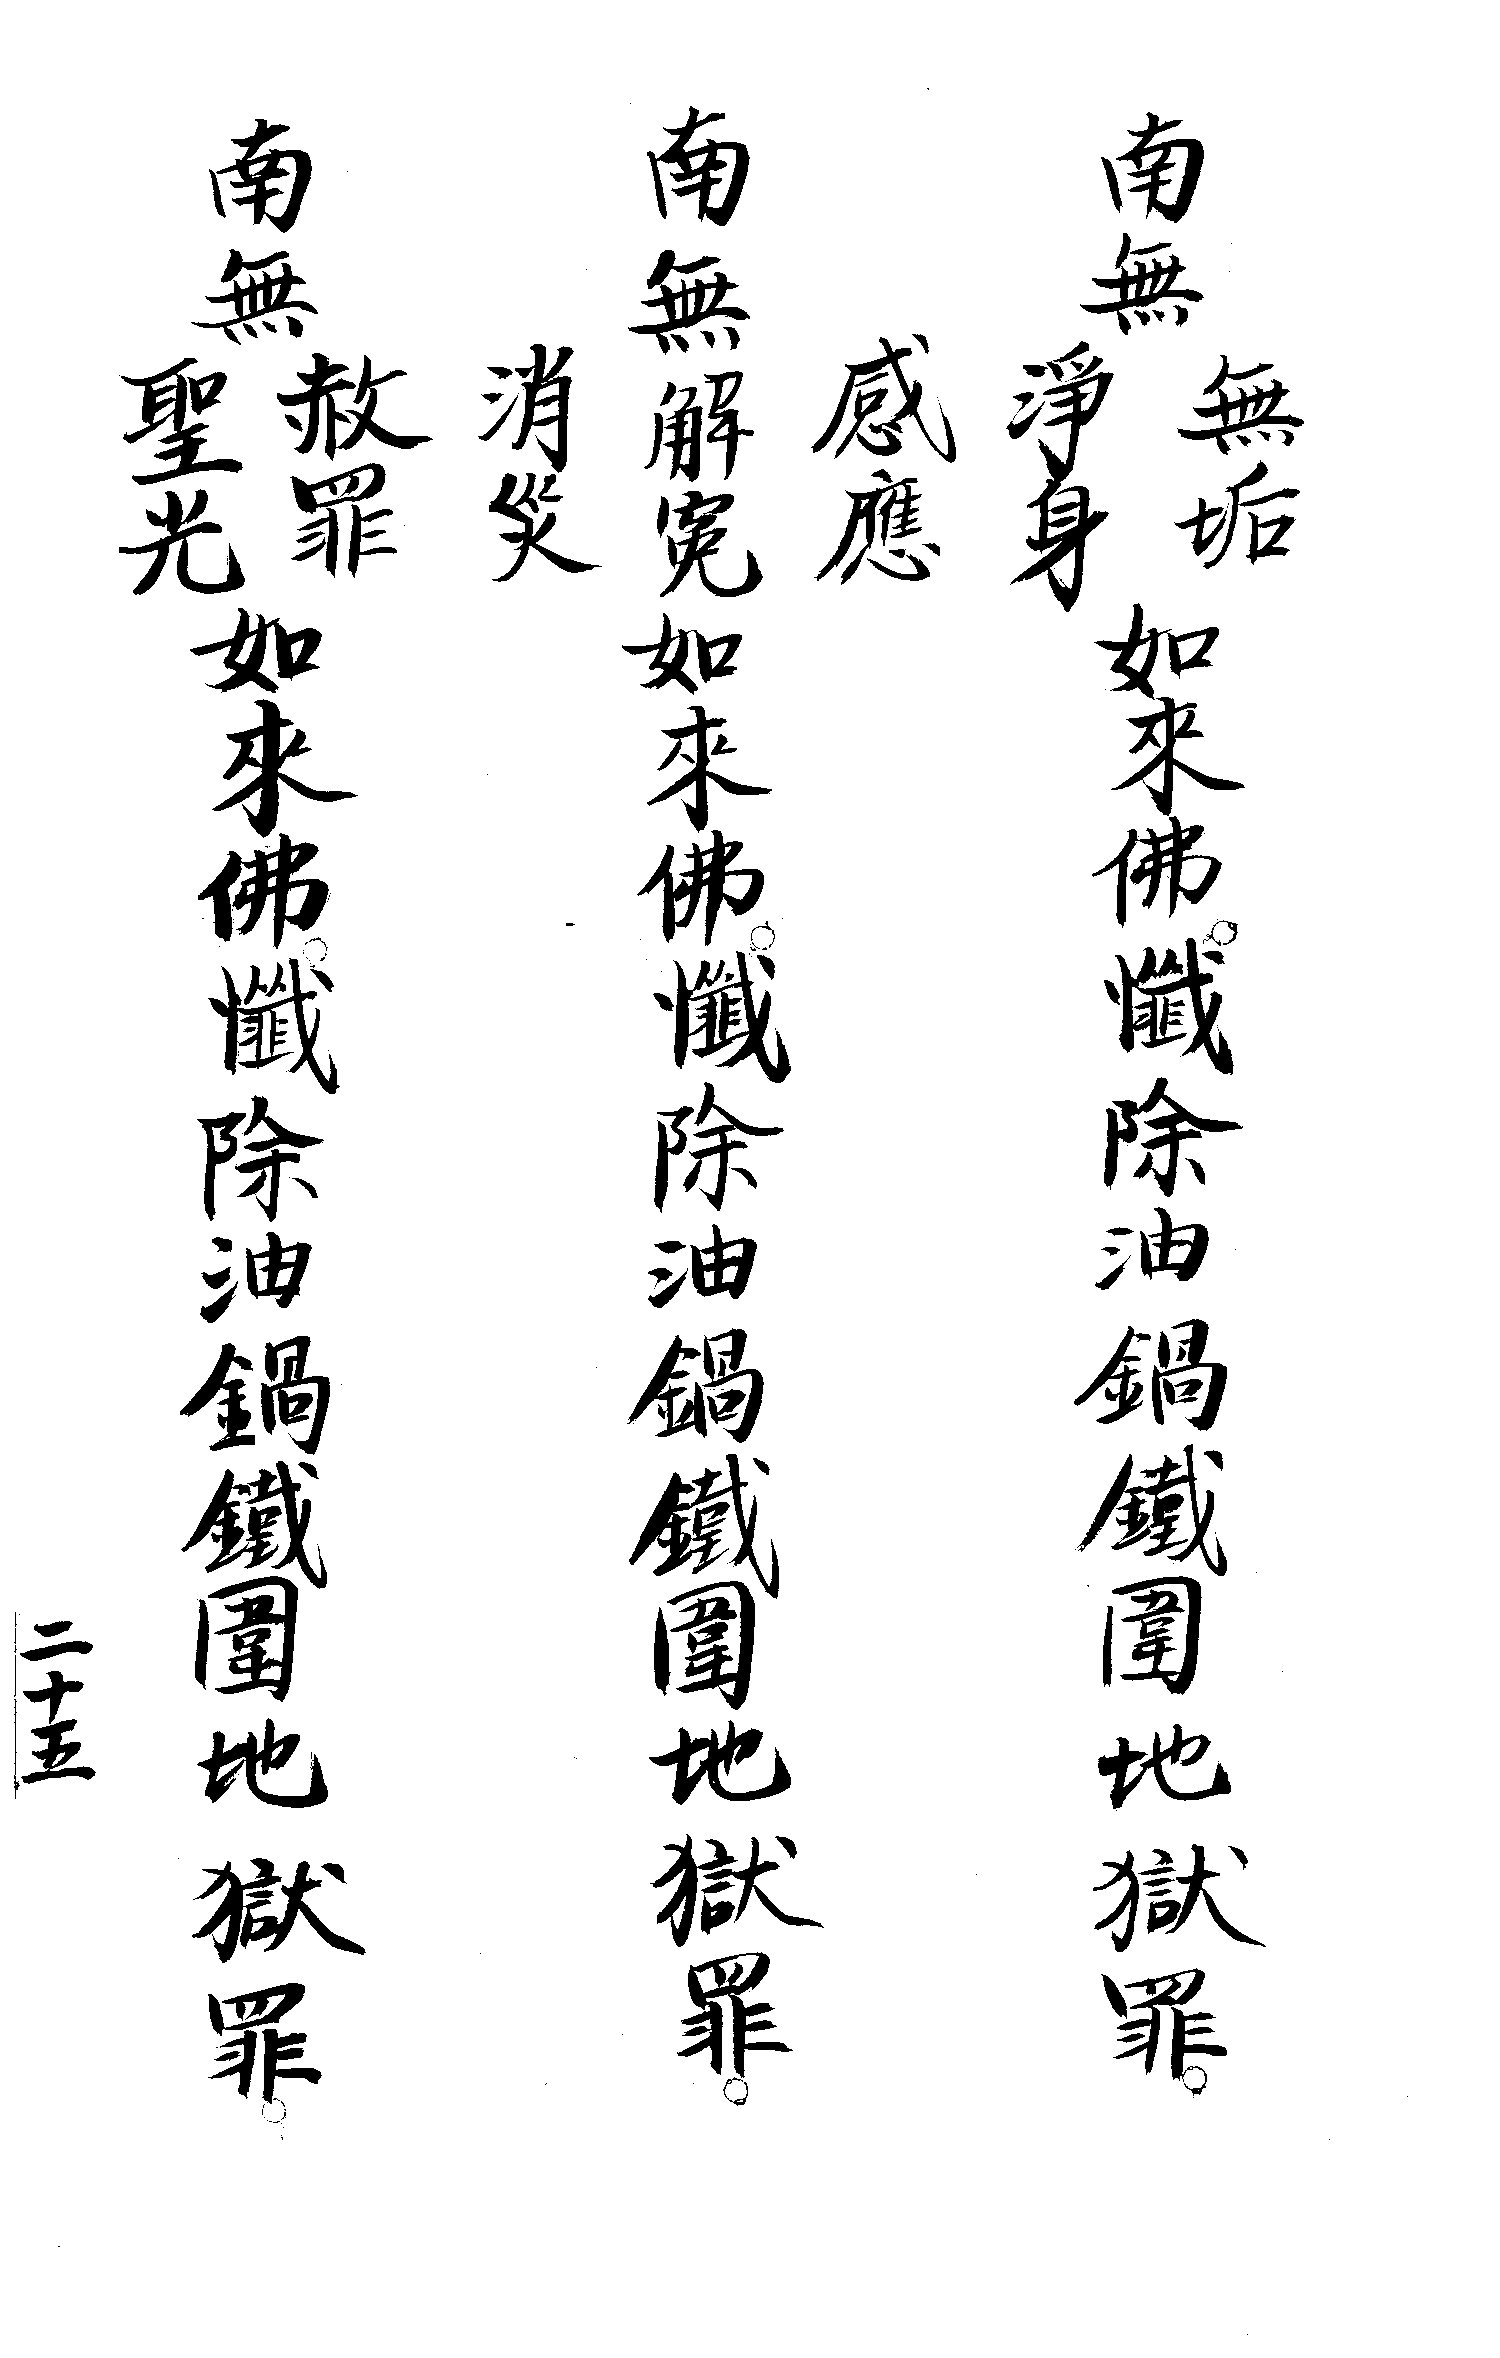 南無
無垢
淨身
如來佛。懺除油鍋鐵圍地獄罪。
南無
感應
解寃
消災
如來佛。懺除油鍋鐵圍地獄罪。
南無
赦罪
聖光
如來佛。懺除油鍋鐵圍地獄罪。
二十五